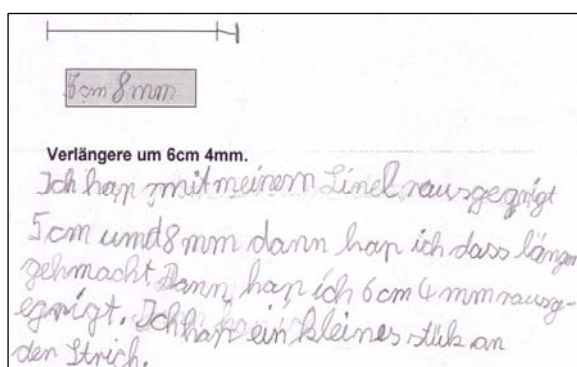 5cm 8mm
Verlängere um 6cm 4mm.
Ich hap mit meinem Linel rausgegrigt
5cm umd 8mm dann hap ich dass länger
gehmacht. Dann hap ich 6cm 4mm rausg-
egrigt. Ich hap ein kleines stük an
den Strich.